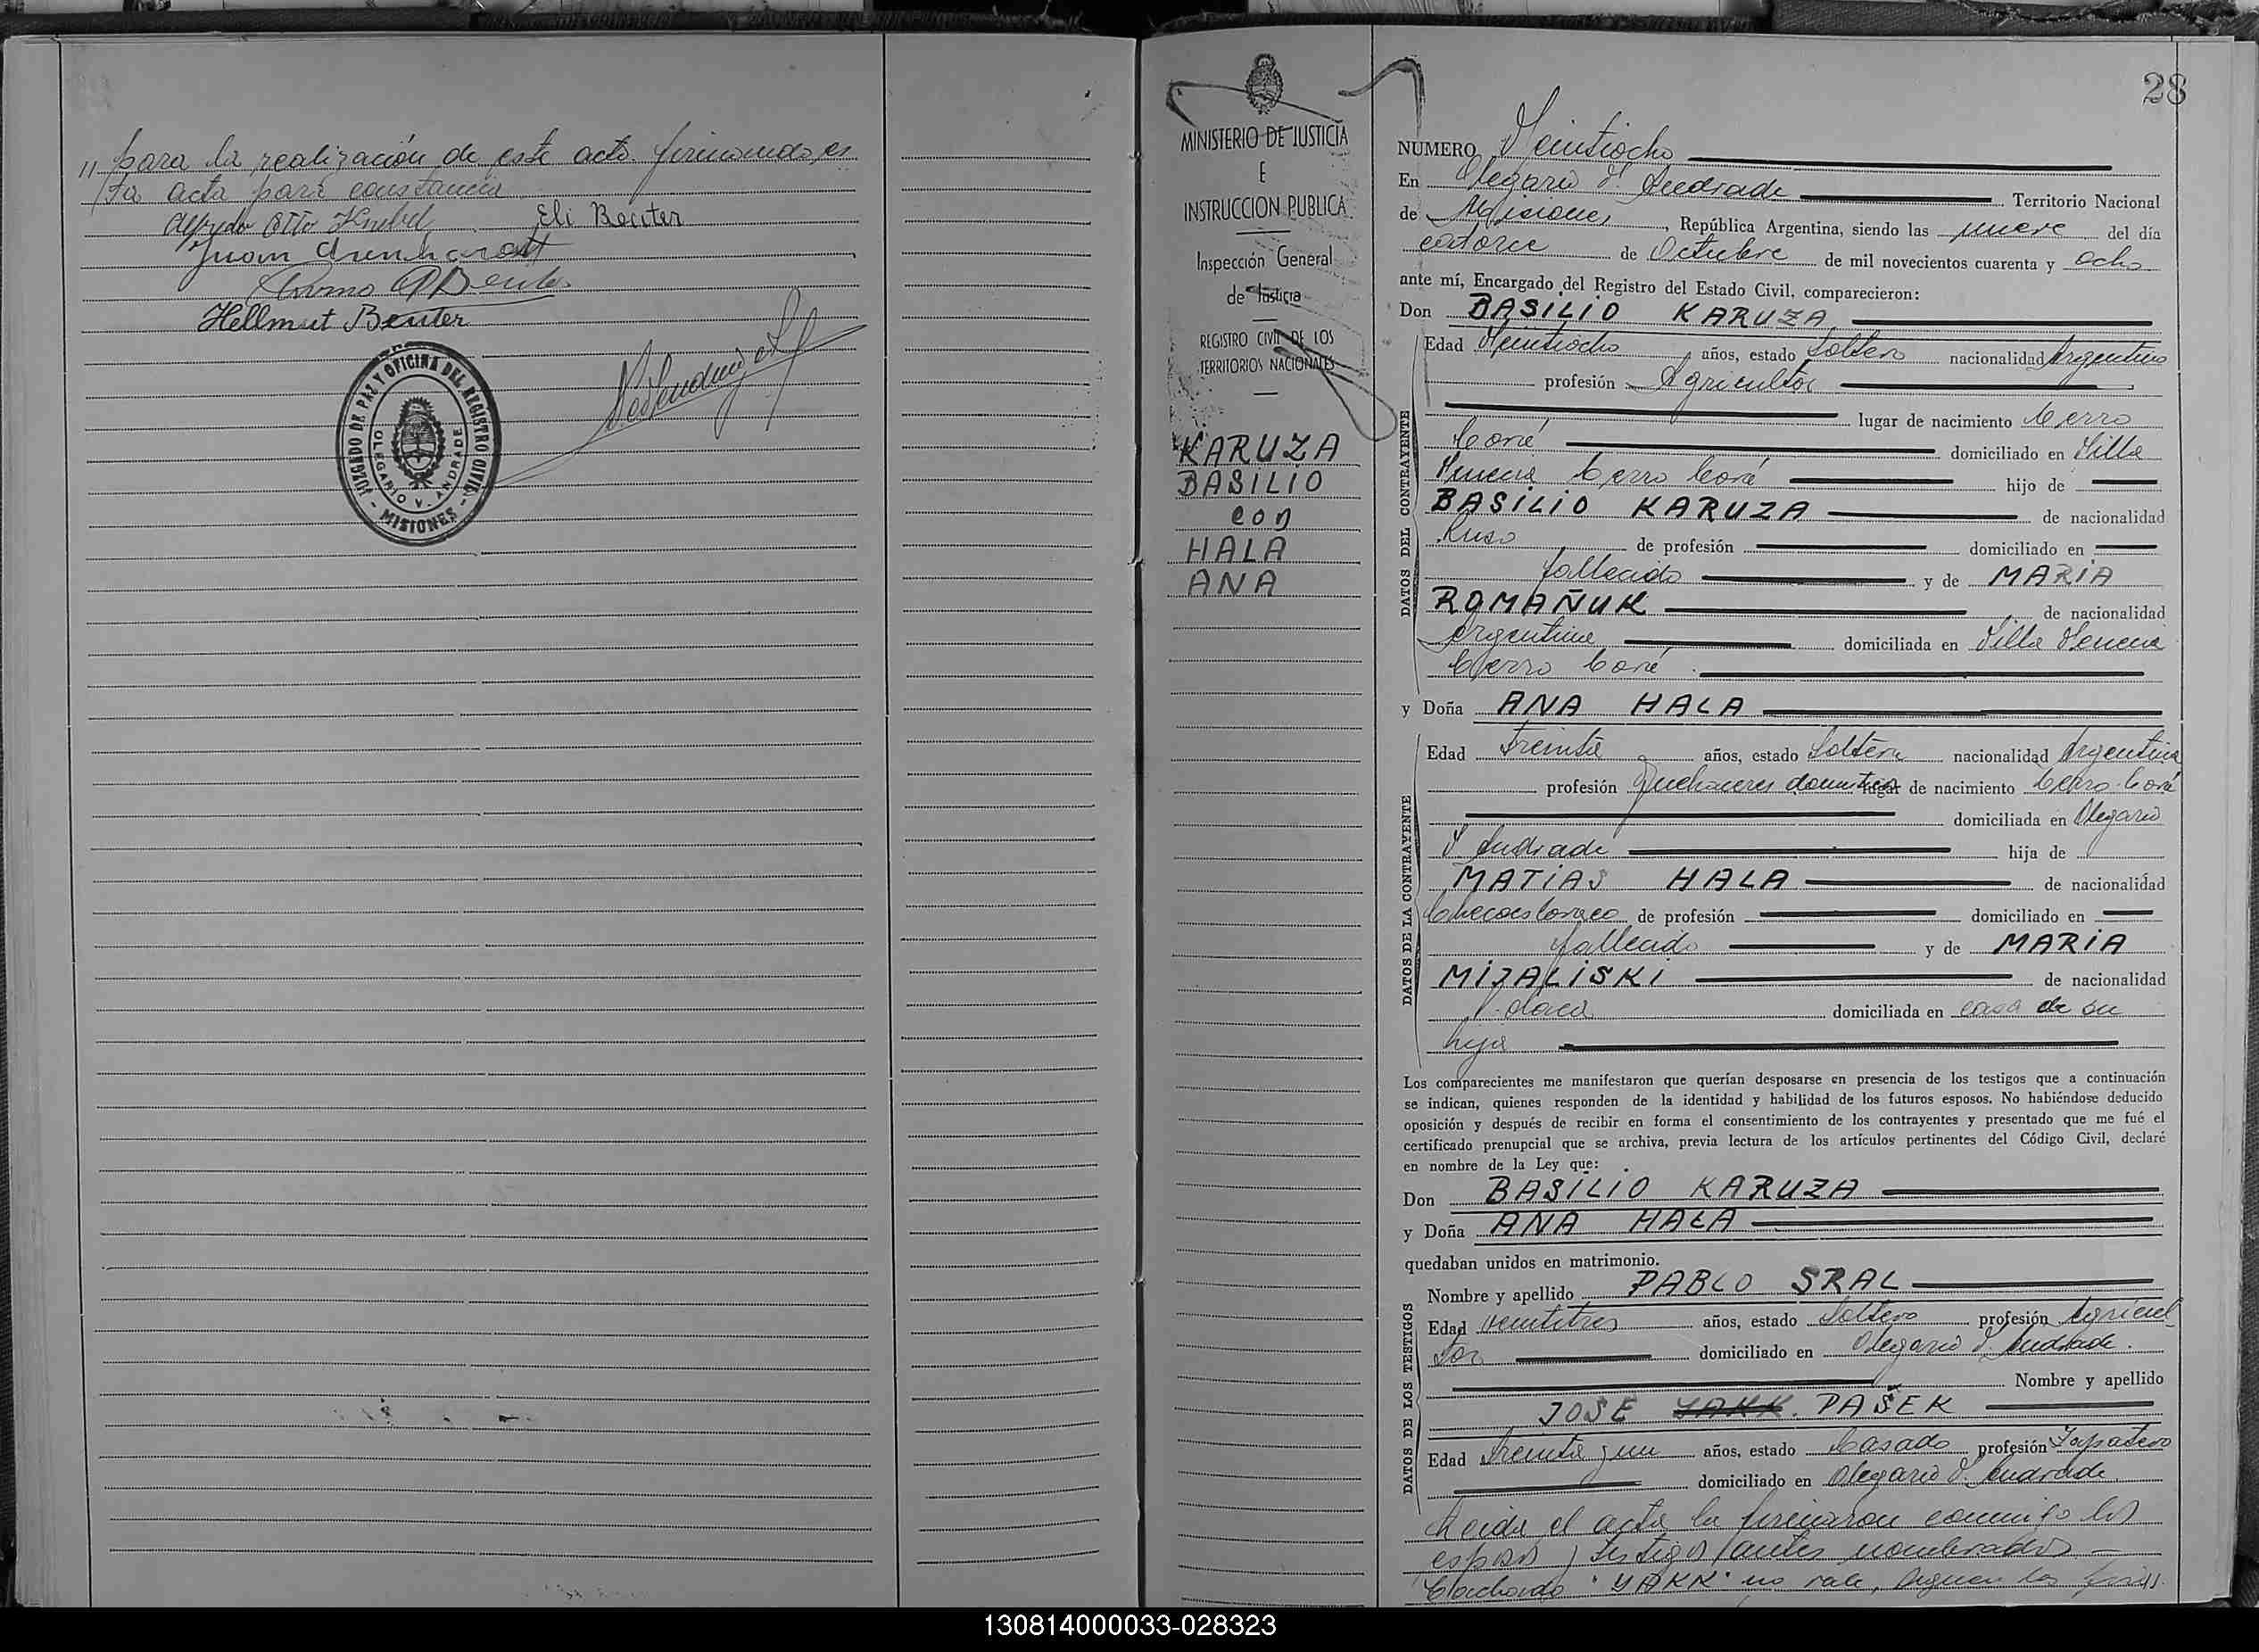 " para la realización de este acto. firmando es
ta acta para constancia
Alfredo Otto Knebel Eli Beuter
Juan
Beuter
Hellmut Beuter
JUZGADO DE PAZ Y OFICINA DEL REGISTRO CIVIL
OLEGARIO V. ANDRADE
- MISIONES -
MINISTERIO DE JUSTICIA
E
INSTRUCCION PUBLICA
Inspección General
de Justicia
REGISTRO CIVIL DE LOS
TERRITORIOS NACIONALES
KARUZA
BASILIO
con
HALA
ANA
28
NUMERO Veintiocho
En Olegario V. Andrade Territorio Nacional
de Misiones, República Argentina, siendo las nueve del día
catorce de Octubre de mil novecientos cuarenta y ocho
ante mí, Encargado del Registro del Estado Civil, comparecieron:
Don BASILIO KARUZA
DATOS DEL CONTRAYENTE
Edad Veintiocho años, estado Soltero nacionalidad Argentino
profesión Agricultor
lugar de nacimiento Cerro
Corá domiciliado en Villa
Venecia Cerro Corá hijo de
BASILIO KARUZA de nacionalidad
Ruso de profesión domiciliado en
fallecido y de MARIA
ROMAÑUK de nacionalidad
Argentina domiciliada en Villa Venecia
Cerro Corá
y Doña ANA HALA
DATOS DE LA CONTRAYENTE
Edad Treinta años, estado Soltera nacionalidad Argentina
profesión Quehaceres domesticos lugar de nacimiento Cerro Corá
domiciliada en Olegario
V Andrade hija de
MATIAS HALA de nacionalidad
Checoeslovaco de profesión domiciliado en
fallecido y de MARIA
MIJALISKI de nacionalidad
Polaca domiciliada en casa de su
hija
Los comparecientes me manifestaron que querían desposarse en presencia de los testigos que a continuación
se indican, quienes responden de la identidad y habilidad de los futuros esposos. No habiéndose deducido
oposición y después de recibir en forma el consentimiento de los contrayentes y presentado que me fué el
certificado prenupcial que se archiva, previa lectura de los artículos pertinentes del Código Civil, declaré
en nombre de la Ley que:
Don BASILIO KARUZA
y Doña ANA HALA
quedaban unidos en matrimonio.
DATOS DE LOS TESTIGOS
Nombre y apellido PABLO SRAL
Edad veintitres años, estado Soltero profesión Agricul
tor domiciliado en Olegario V. Andrade.
Nombre y apellido
JOSE YAKK. PAŠEK
Edad Treinta y un años, estado Casado profesión Zapatero
domiciliado en Olegario V. Andrade.
Leida el acta la firmaron conmigo los
esposos y testigos antes nombrados -
Tachado "YAKK" no vale, siguen las firs"
130814000033-028323